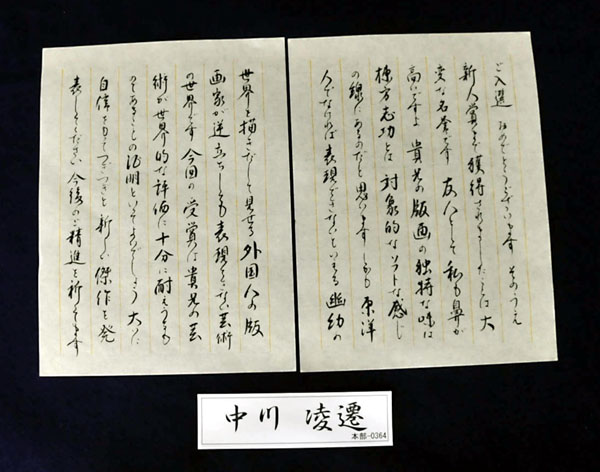 ご入選 おめでとうございます そのうえ
新人賞まで獲得されましたことは 大
変な名誉です 友人として 私も鼻が
高いですよ 貴兄の版画の独特な味は
棟方志功とは 対象的なソフトな感じ
の線にあるのだと思います しかも 東洋
人でなければ表現できないといえる 幽幻の
世界を描きだして見せる 外国人の版
画家が逆立ちしても表現できない芸術
の世界です 今回の受賞は 貴兄の芸
術が世界的な評価に十分に耐えうるも
のであることの証明といってよいでしょう 大いに
自信をもってつぎつぎと新しい傑作を発
表してください 今後のご精進を祈ってます
中川 凌遷
本部-0364